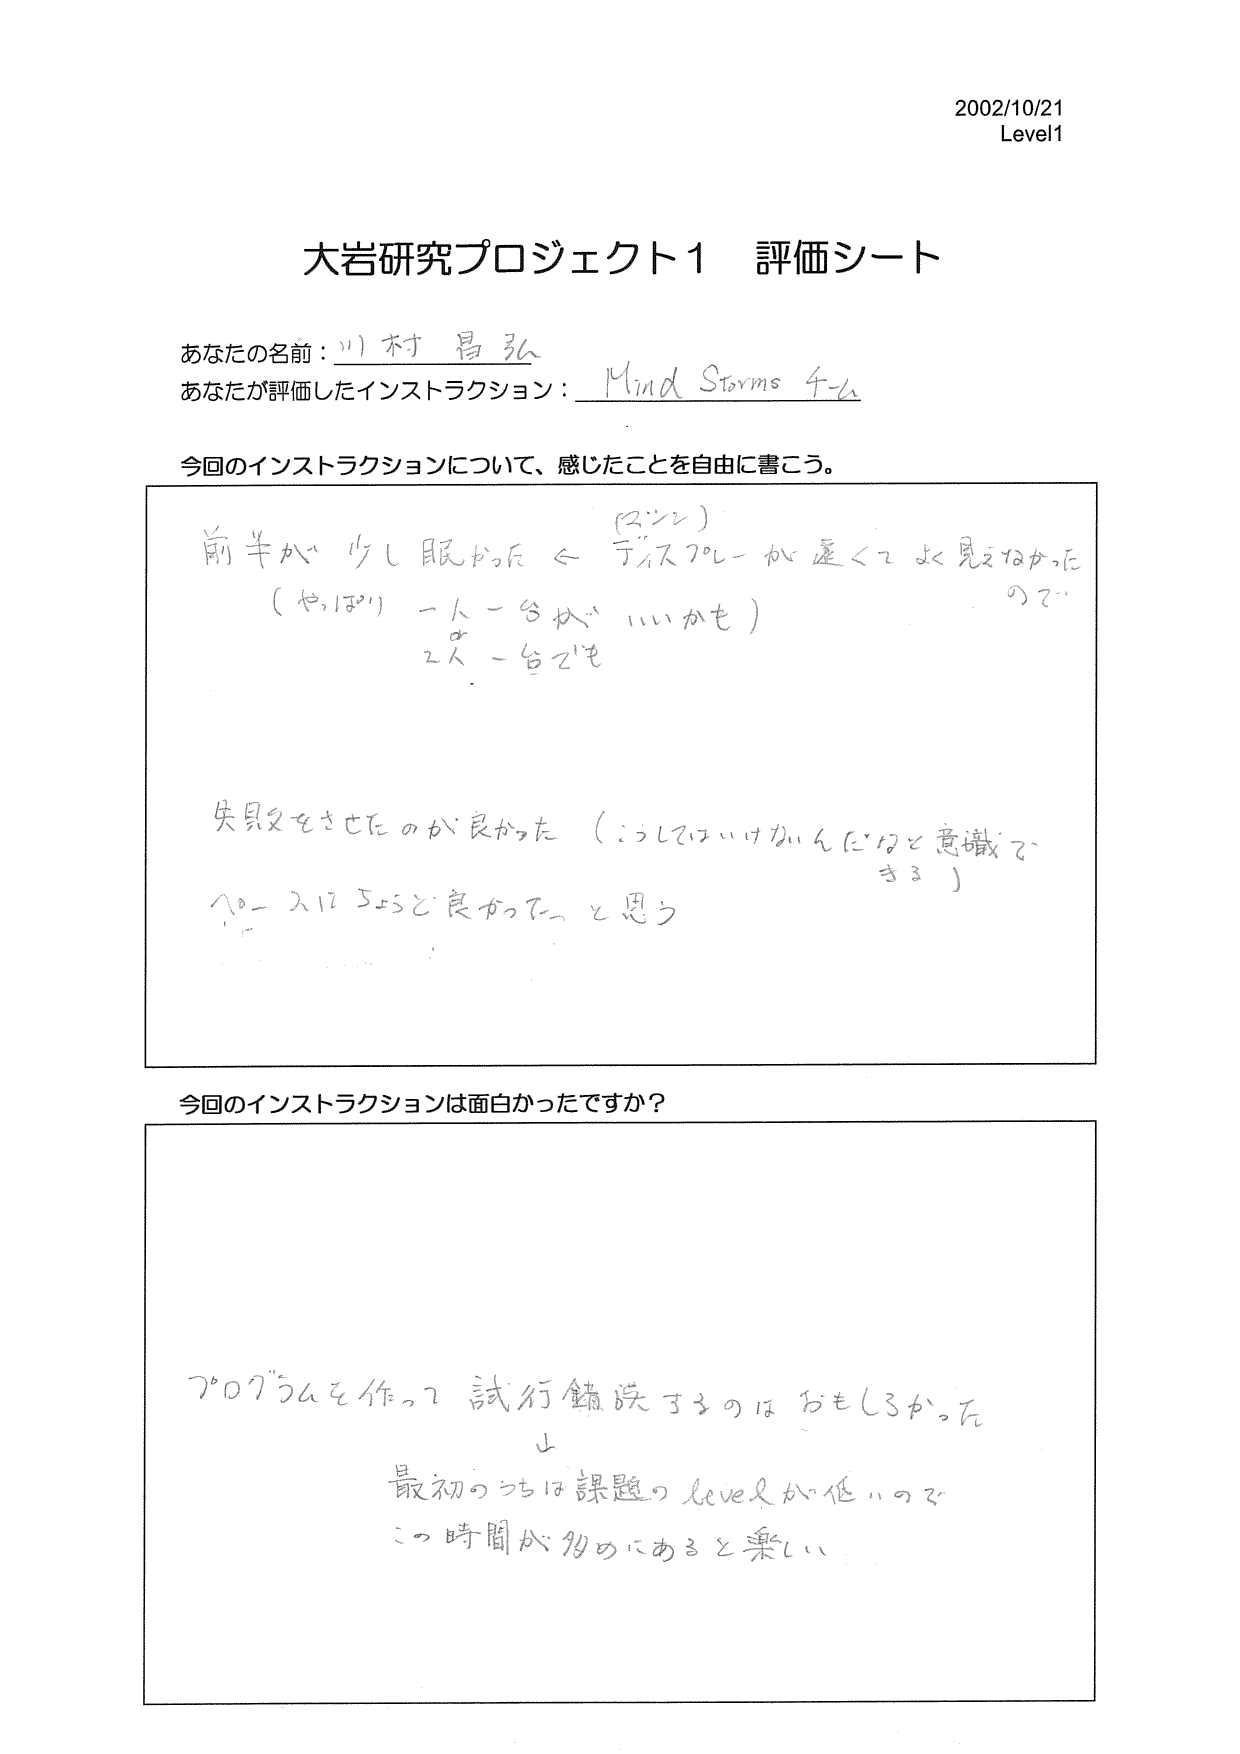 2002/10/21
Level1
大岩研究プロジェクト1　評価シート
あなたの名前：川村 昌弘
あなたが評価したインストラクション： Mind Storms チーム
今回のインストラクションについて、感じたことを自由に書こう。
(マシン)
前半が 少し 眠かった ← ディスプレーが 遠くて よく見えなかった
ので
(やっぱり 一人一台が いいかも)
or
2人 一台でも
失敗をさせたのが良かった (こうしてはいけないんだなと意識で
きる)
ペースはちょうど良かったと思う
今回のインストラクションは面白かったですか？
プログラムを作って 試行錯誤するのは おもしろかった
↓
最初のうちは課題のlevelが低いので
この時間が多めにあると楽しい